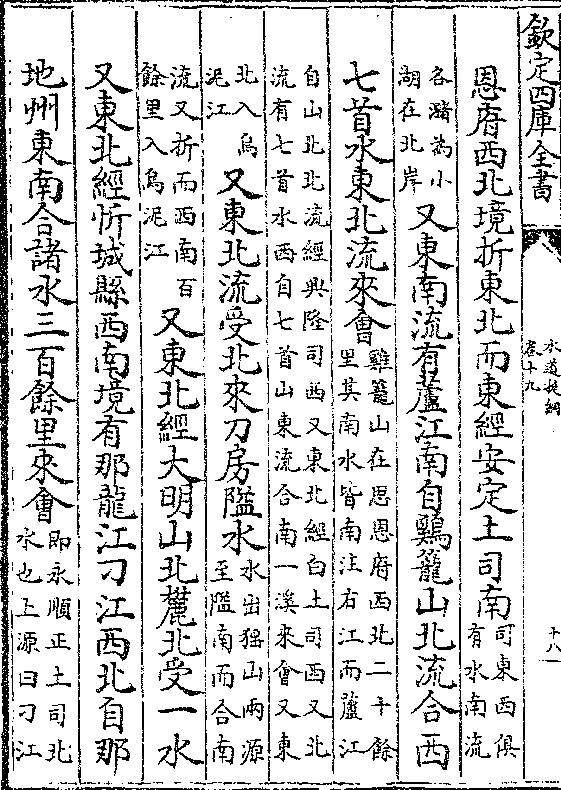 欽定四庫全書
水道提綱
卷十九
十八
恩府西北境折東北而東經安定土司南
司東西俱
有水南流
各瀦為小
湖在北岸
又東南流有蘆江南自鷄籠山北流合西
七首水東北流來會
雞籠山在思恩府西北二十餘
里其南水皆南注右江而蘆江
自山北北流經興隆司西又東北經白土司西又北
流有七首水西自七首山東流合南一溪來會又東
北入烏
泥江
又東北流受北來刀房隘水
水出猺山兩源
至隘南而合南
流又折而西南百
餘里入烏泥江
又東北經大明山北麓北受一水
又東北經忻城縣西南境有那龍江刁江西北自那
地州東南合諸水三百餘里來會
即永順正土司北
水也上源曰刁江